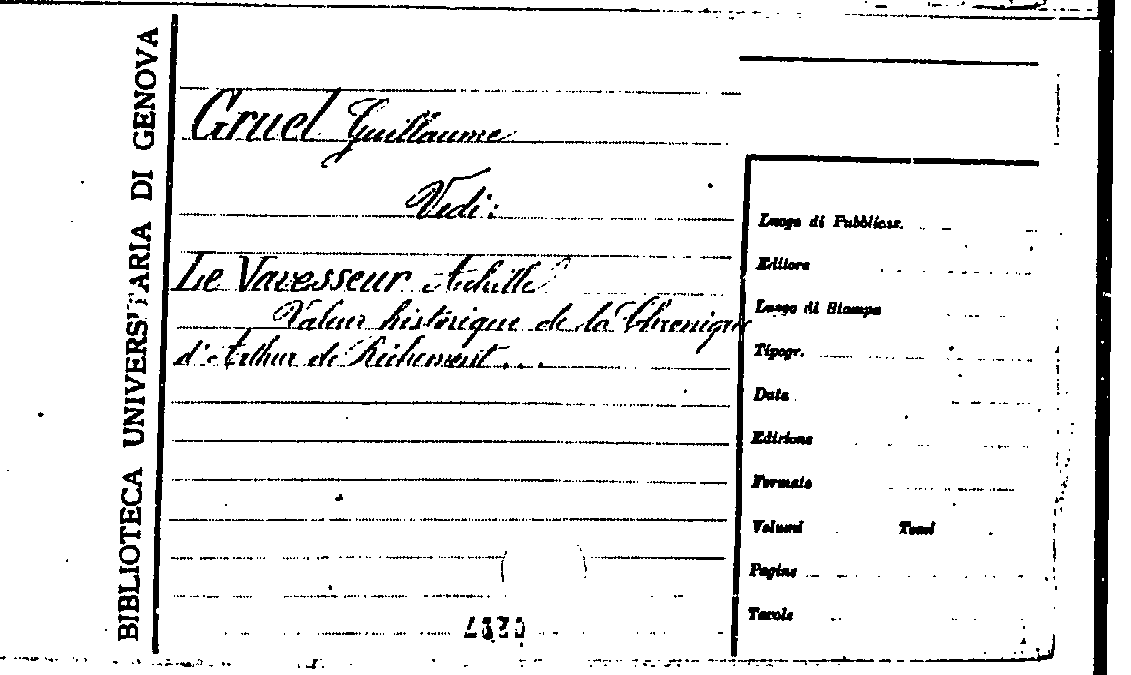 BIBLIOTECA UNIVERSITARIA DI GENOVA
Gruel Guillaume
Vedi:
Le Vavasseur Achille
Valeur historique de la Chronique
d'Arthur de Richemont...
Luogo di Pubblicaz.
Editore
Luogo di Stampa
Tipogr.
Data
Edizione
Formato
Volumi Tomi
Pagine
Tavole